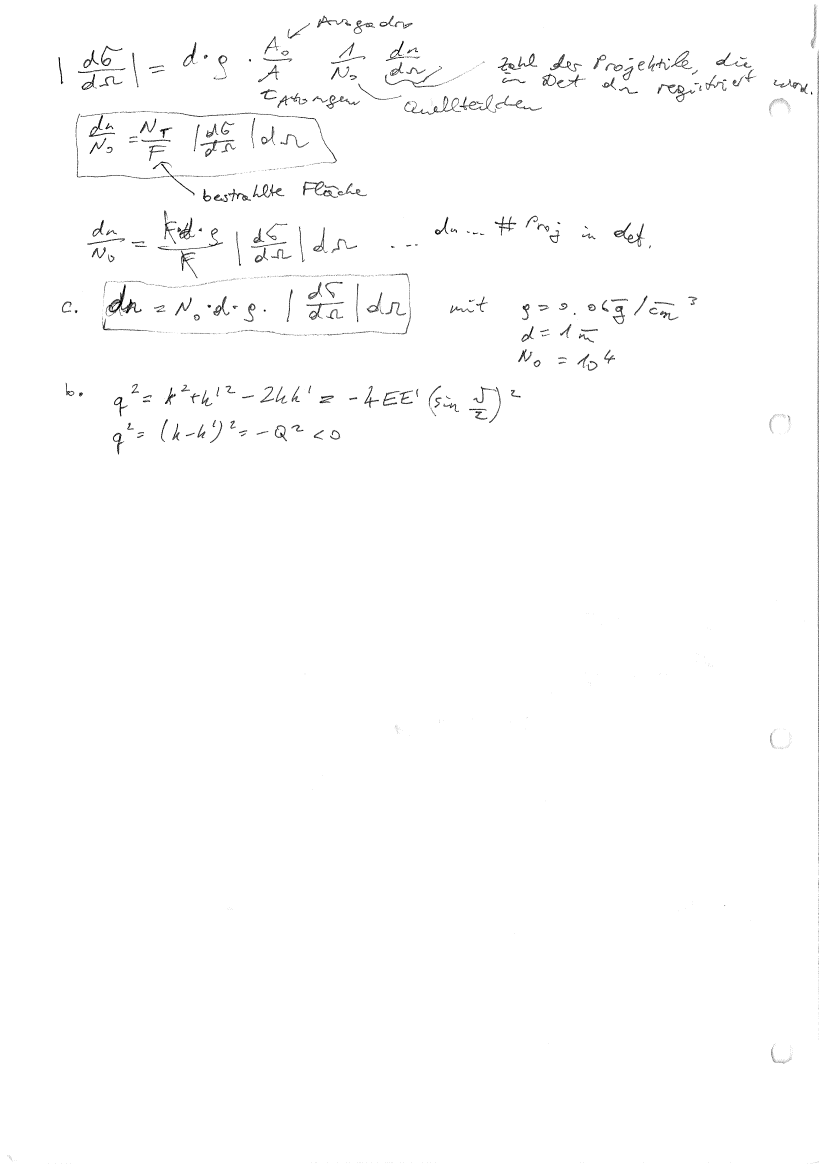 Avogadro
|dσ/dΩ| = d·ρ · A₀/A 1/N₀ dn/dΩ Zahl der Projektile, die
in Det dΩ registriert word.
Atomgew Quellteilchen
dn/N₀ = N_T/F |dσ/dΩ| dΩ
bestrahlte Fläche
dn/N₀ = F·d·ρ/F |dσ/dΩ| dΩ ... dn... # Proj in det.
c. dn = N₀·d·ρ· |dσ/dΩ| dΩ mit ρ = 0.06 g/cm³
d = 1 m
N₀ = 10⁴
b. q² = k² + k'² - 2kk' = -4EE' (sin ϑ/2)²
q² = (k-k')² = -Q² < 0